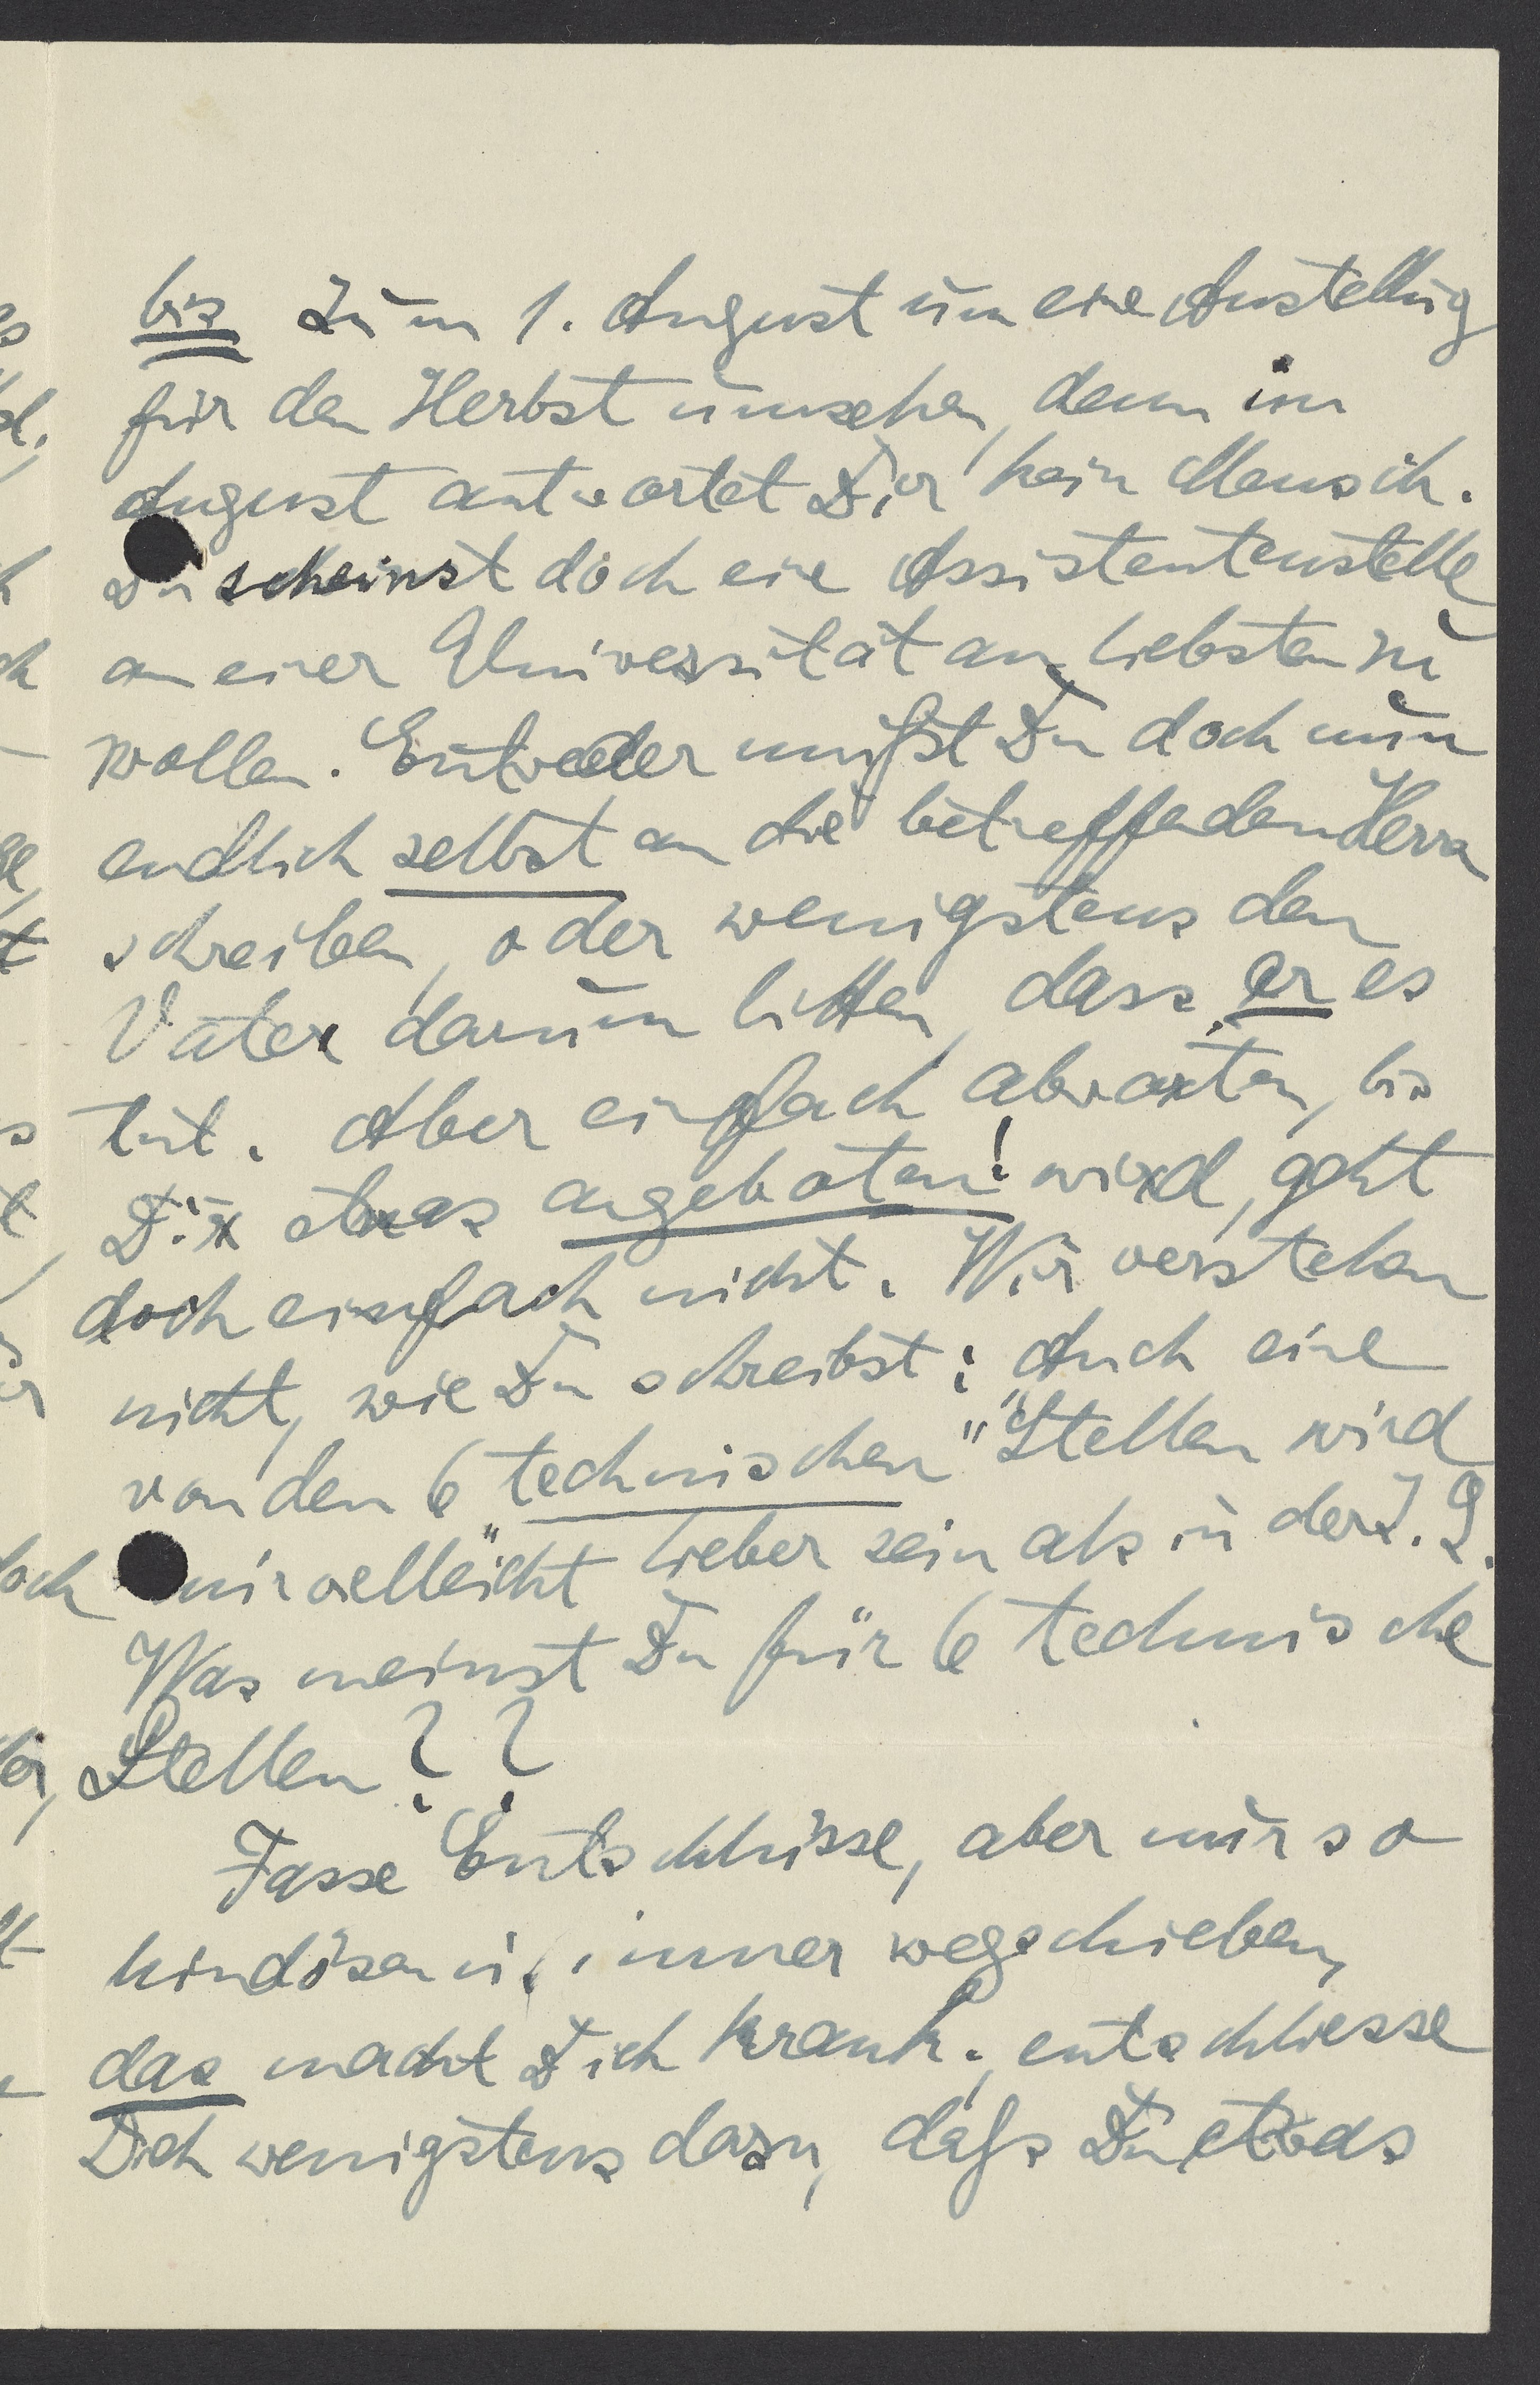 bis zum 1. August um eine Anstellung
für den Herbst umsehen, denn im
August antwortet Dir kein Mensch.
Du scheinst doch eine Assistentenstelle
an einer Universität am liebsten zu
wollen. Entweder mußt Du doch nun
endlich selbst an die betreffenden Herrn
schreiben, oder wenigstens den
Vater darum bitten, dass er es
tut. Aber einfach abwarten, bis
Dir etwas angeboten! wird, geht
doch einfach nicht. Wir verstehen
nicht, wie Du schreibst: Auch eine
von den 6 technischen" Stellen wird
mir vielleicht lieber sein als in der I. G.
Was meinst Du für 6 technische
Stellen??
Fasse Entschlüsse, aber nur so
hindösen u. immer wegschieben,
das macht Dich krank; entschliesse
Dich wenigstens dazu, daß Du etwas